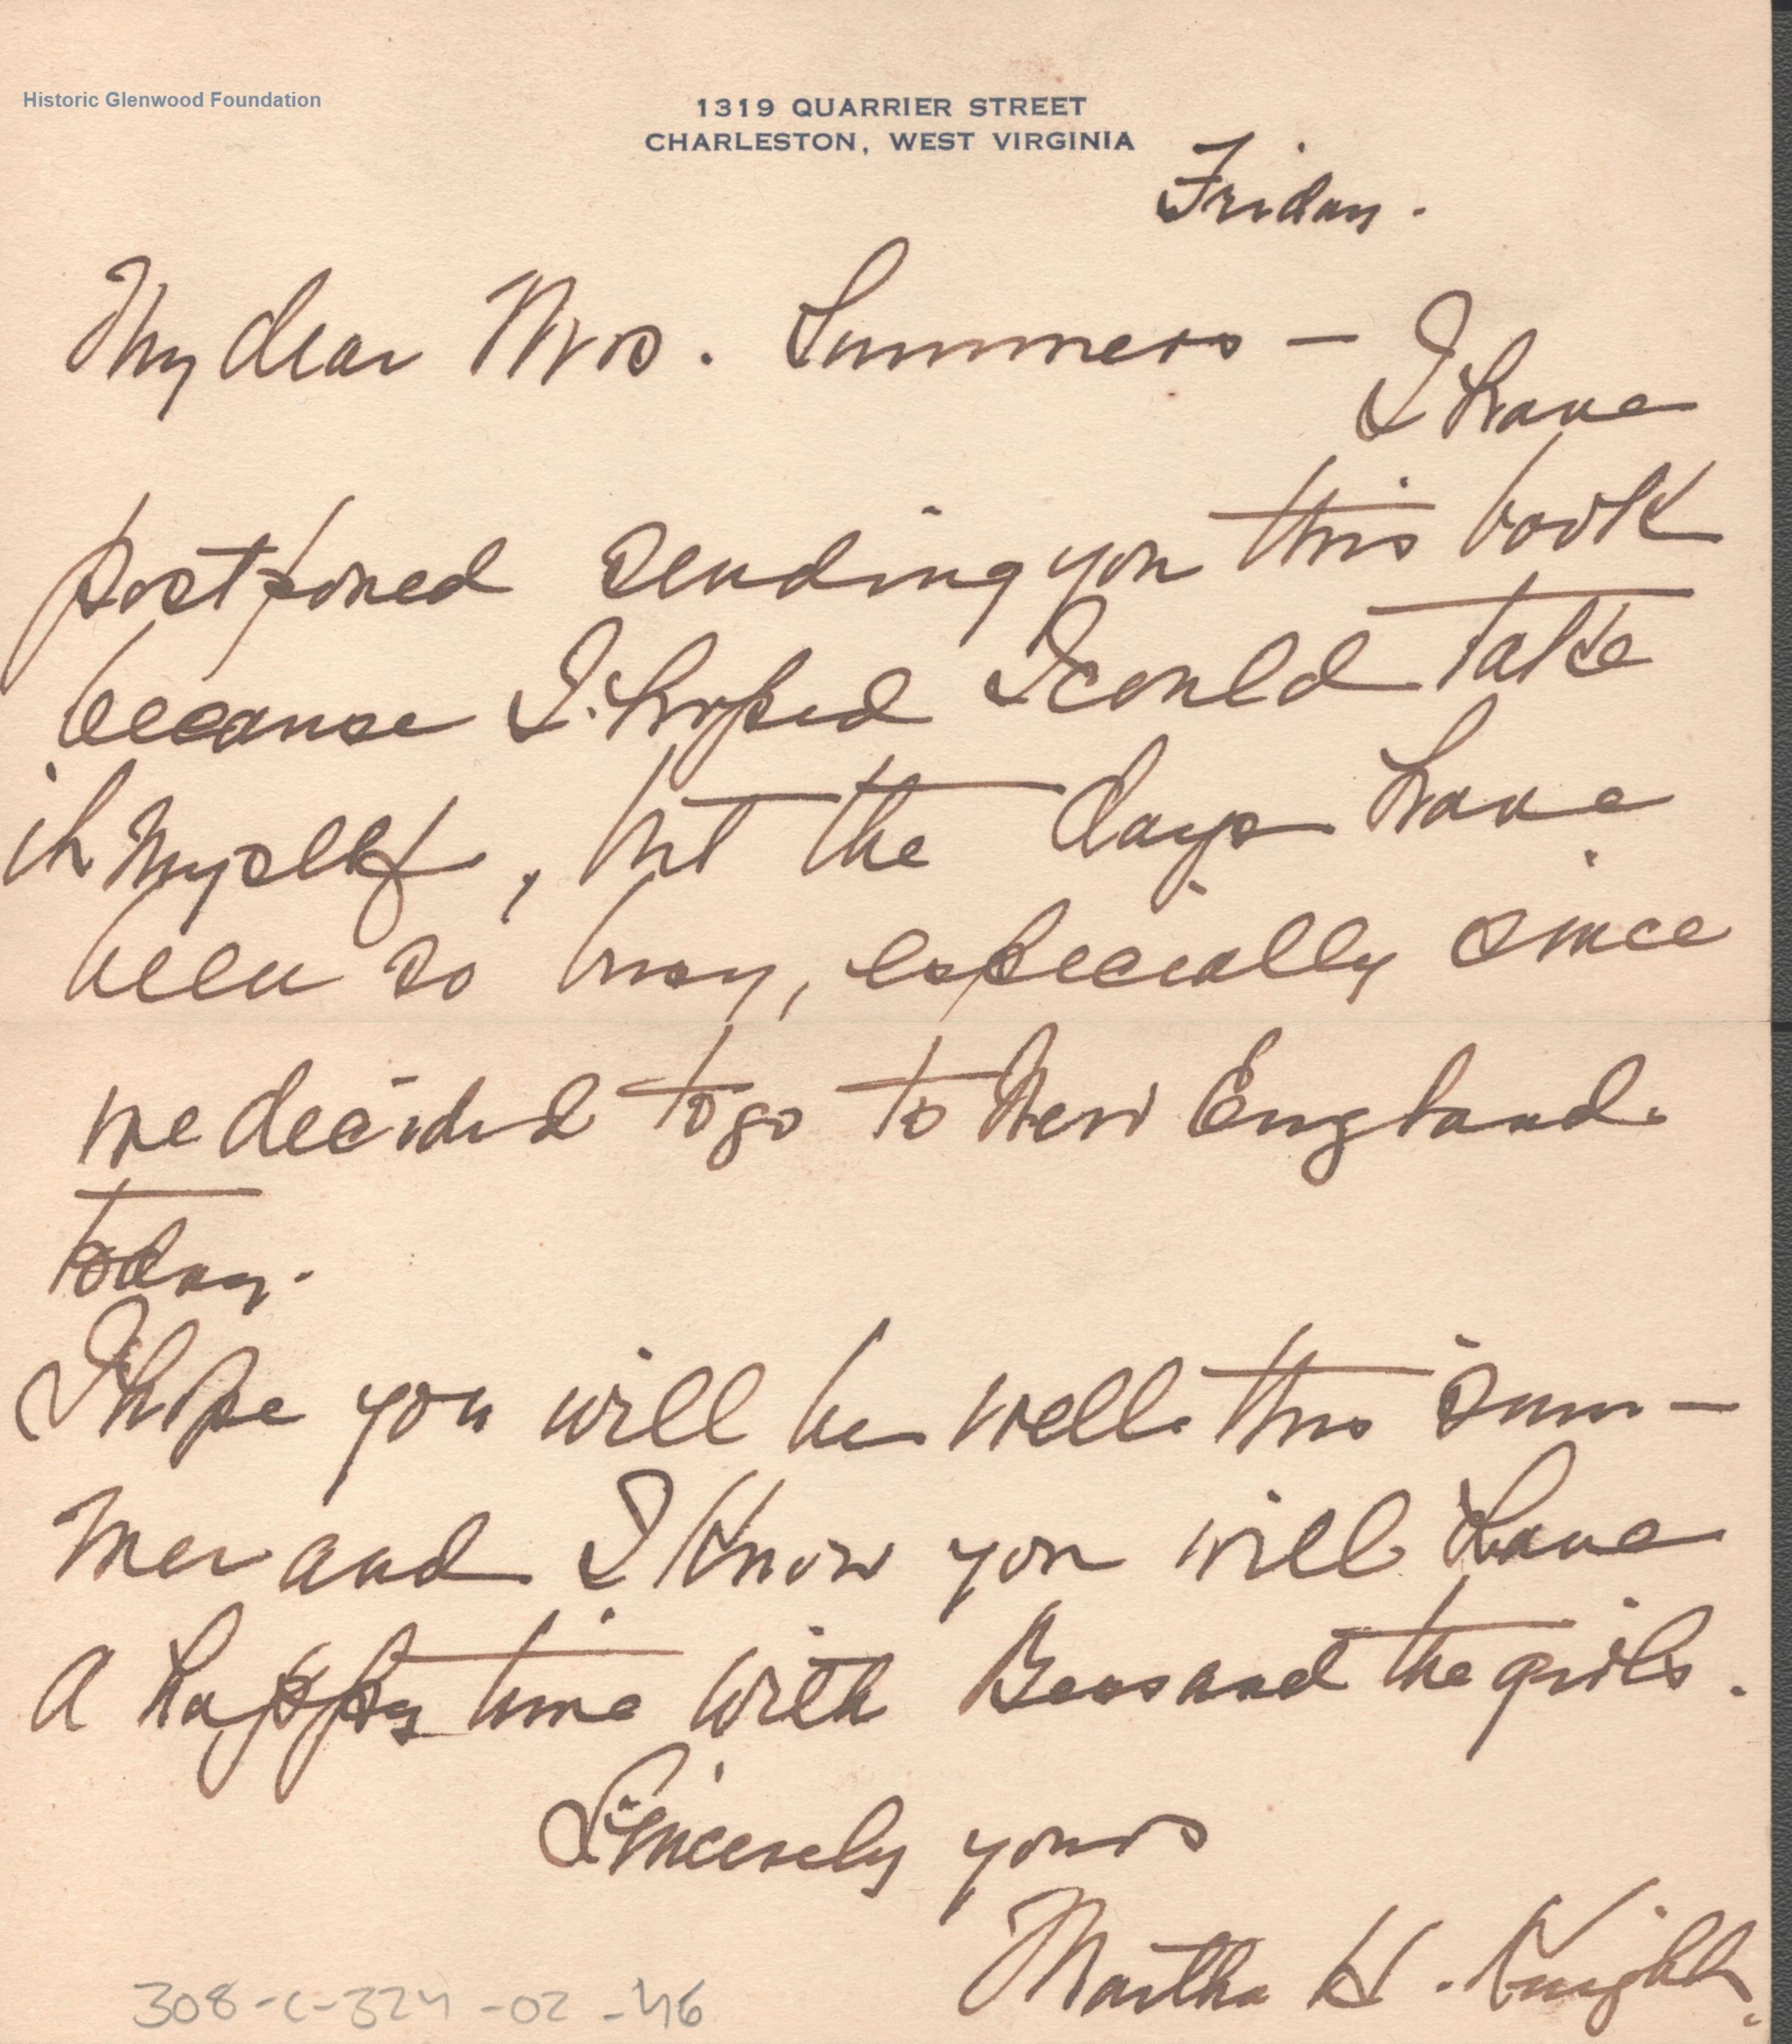 Historic Glenwood Foundation
1319 QUARRIER STREET
CHARLESTON, WEST VIRGINIA
Friday.
My dear Mrs. Summers —
I have
postponed sending you this book
because I hoped I could take
it myself, but the days have
been so busy, especially since
we decided to go to New England
today.
I hope you will be well this sum-
mer and I know you will have
a happy time with Bess and the girls.
Sincerely yours
Martha H. Knight.
308-C-324-02-46